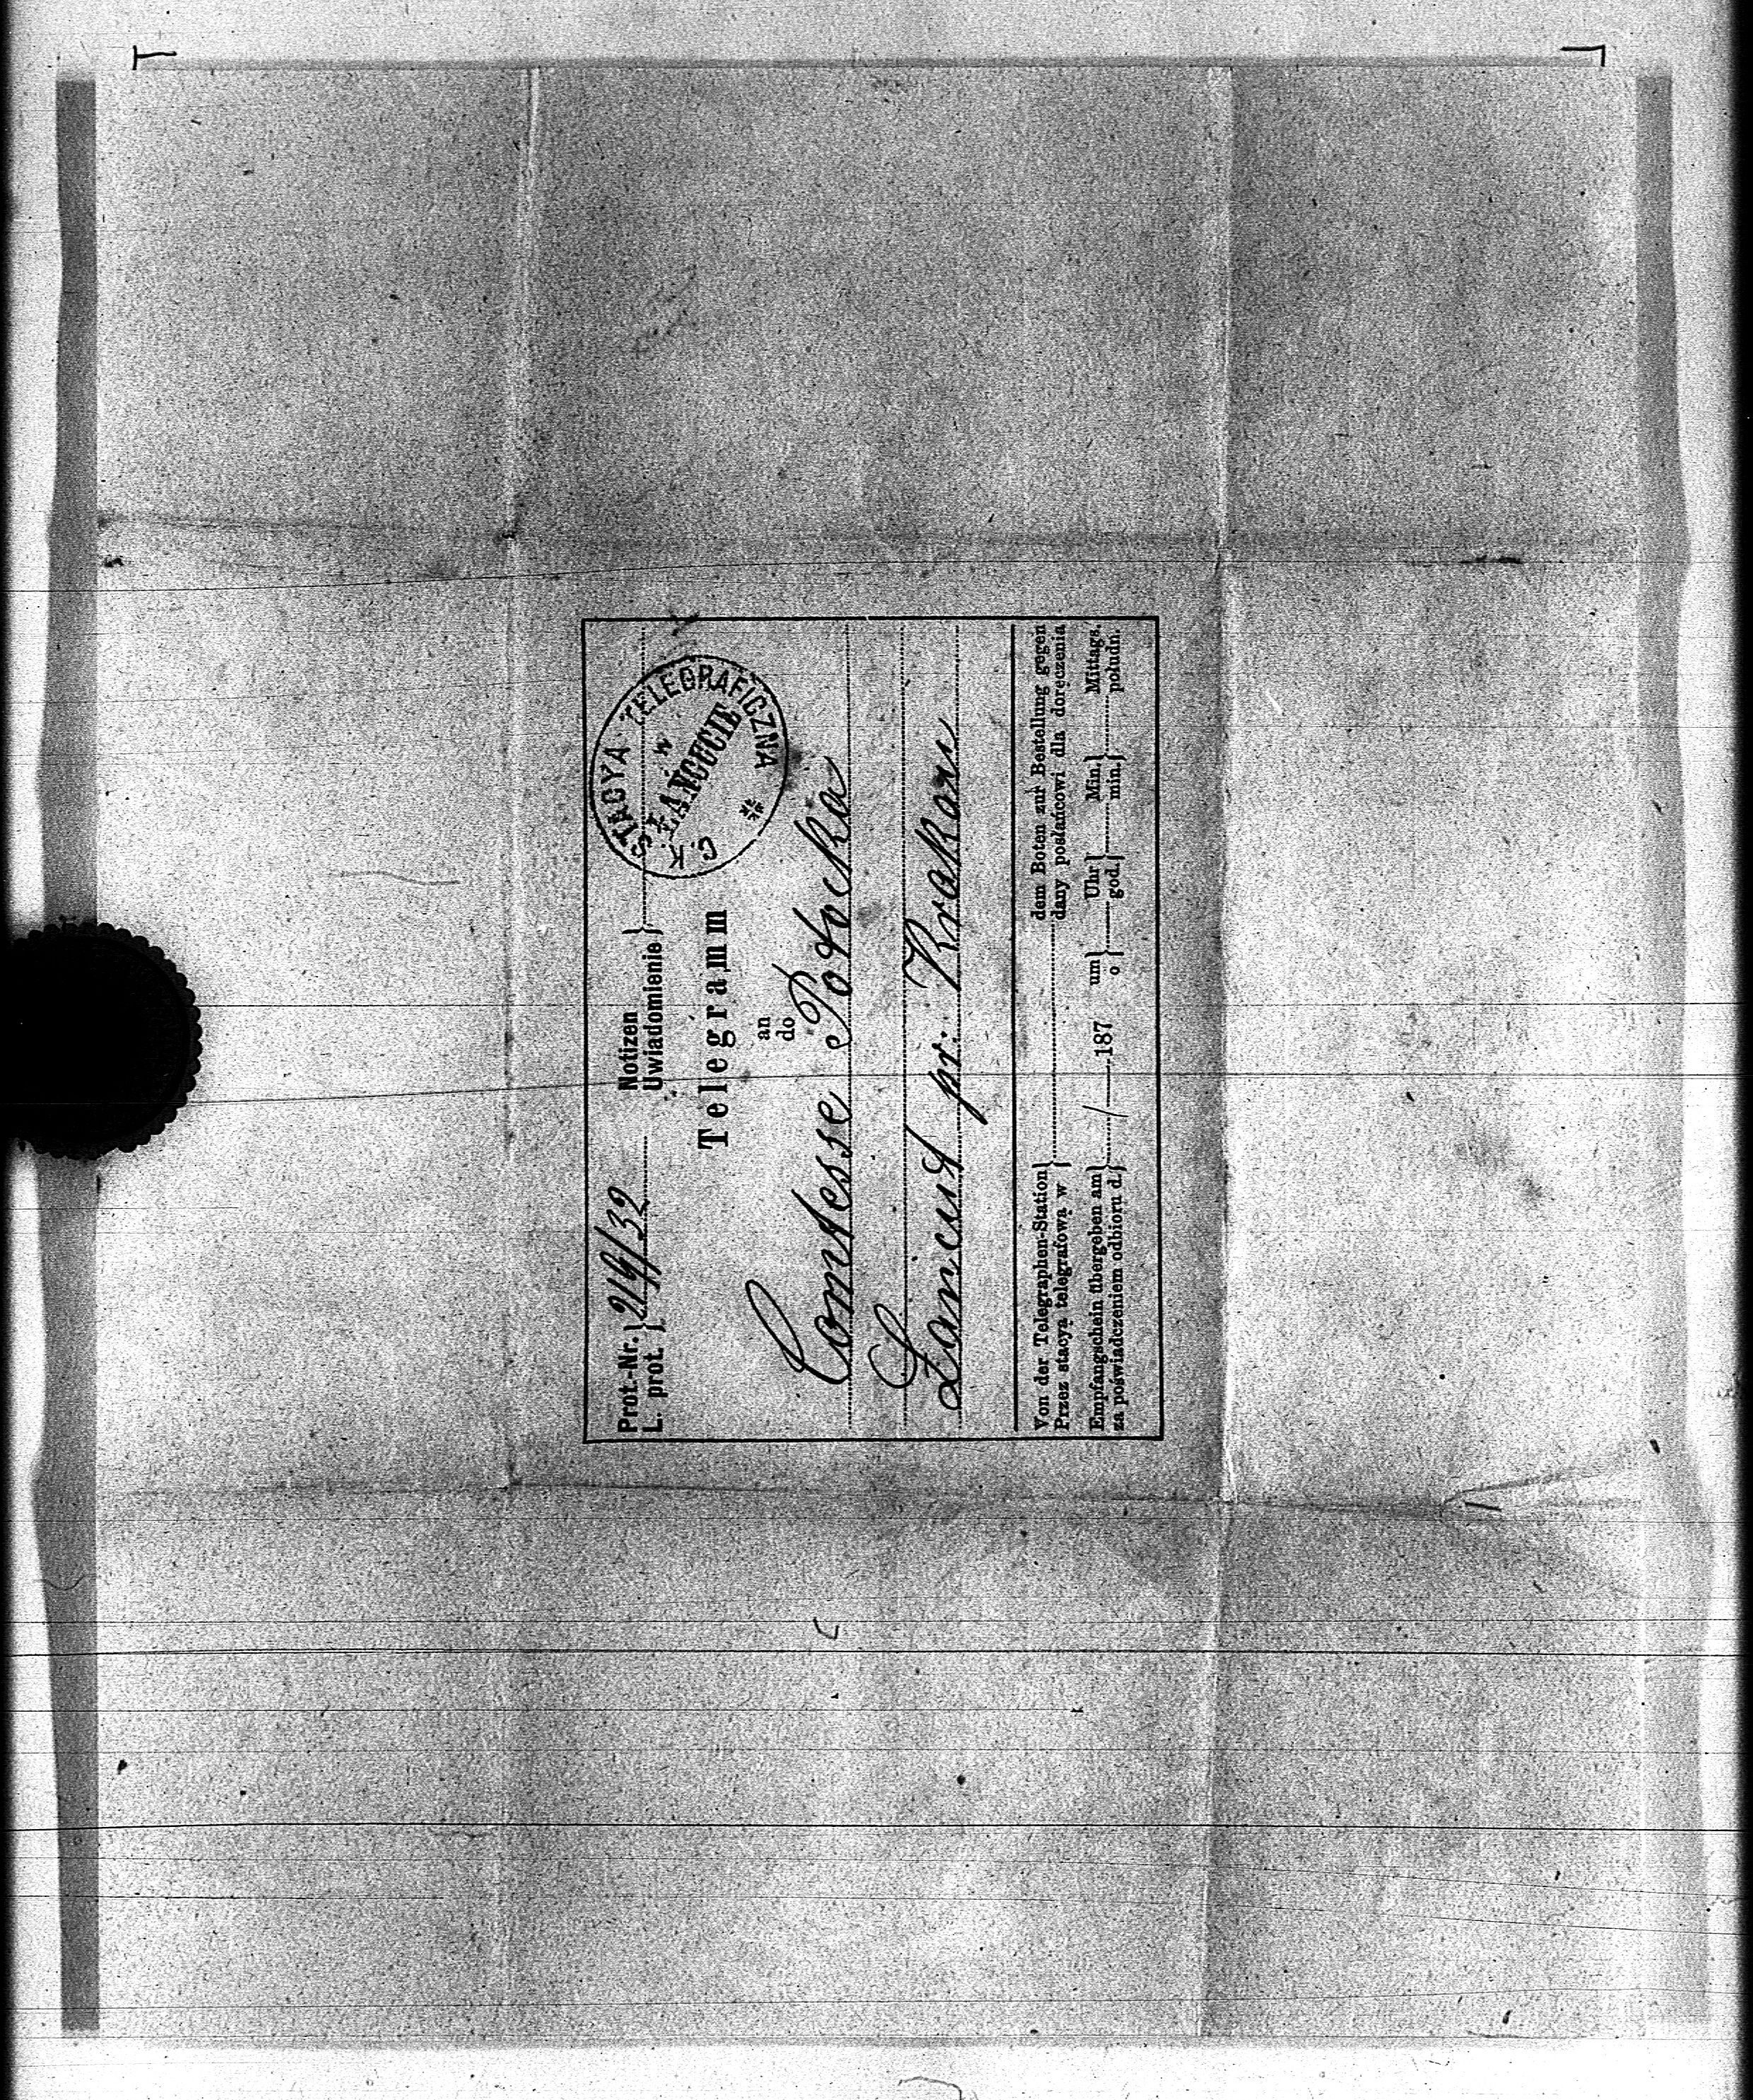 Prot.-Nr. } 219/32 Notizen }
L. prot. } Uwiadomienie }
C. K. STACYA TELEGRAFICZNA
w
ŁAŃCUCIE
Telegramm
an
do
Comtesse Potocka
Lancut pr. Krakau
Von der Telegraphen-Station } dem Boten zur Bestellung gegen
Przez stacyą telegrafową w } dany posłańcowi dla doręczenia
Empfangschein übergeben am } / 187 um } Uhr } Min. } Mittags.
za poświadczeniem odbioru d. } o } god. } min. } połudn.